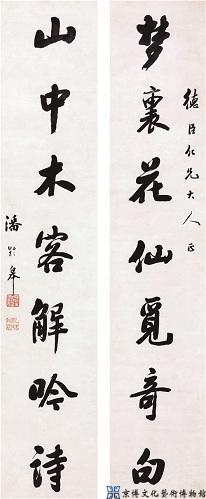 德臣仁兄大人正
梦裏花仙覓奇句
山中木客解吟詩
潘齡皋
京博文化藝術博物館